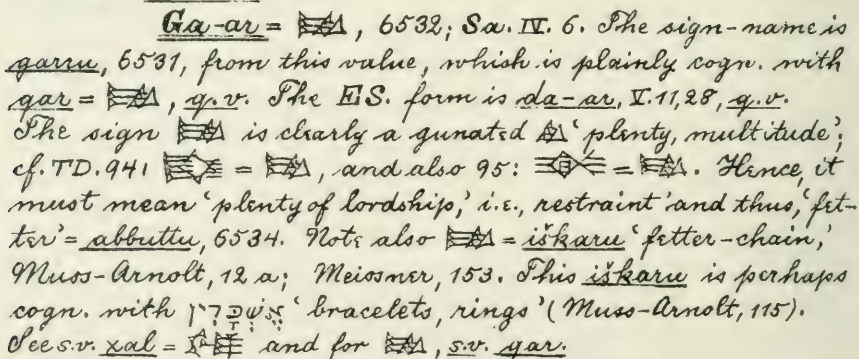 Ga-ar = , 6532; Sa. IV. 6. The sign-name is
garru, 6531, from this value, which is plainly cogn. with
gar = , q.v. The ES. form is da-ar, V.11,28, q.v.
The sign is clearly a gunated 'plenty, multitude';
cf. TD. 94: = , and also 95: = . Hence, it
must mean 'plenty of lordship,' i.e., restraint' and thus, 'fet-
ter' = abbuttu, 6534. Note also = iškaru 'fetter-chain,'
Muss-Arnolt, 12 a; Meissner, 153. This iškaru is perhaps
cogn. with 'bracelets, rings' (Muss-Arnolt, 115).
See s.v. xal = and for , s.v. gar.